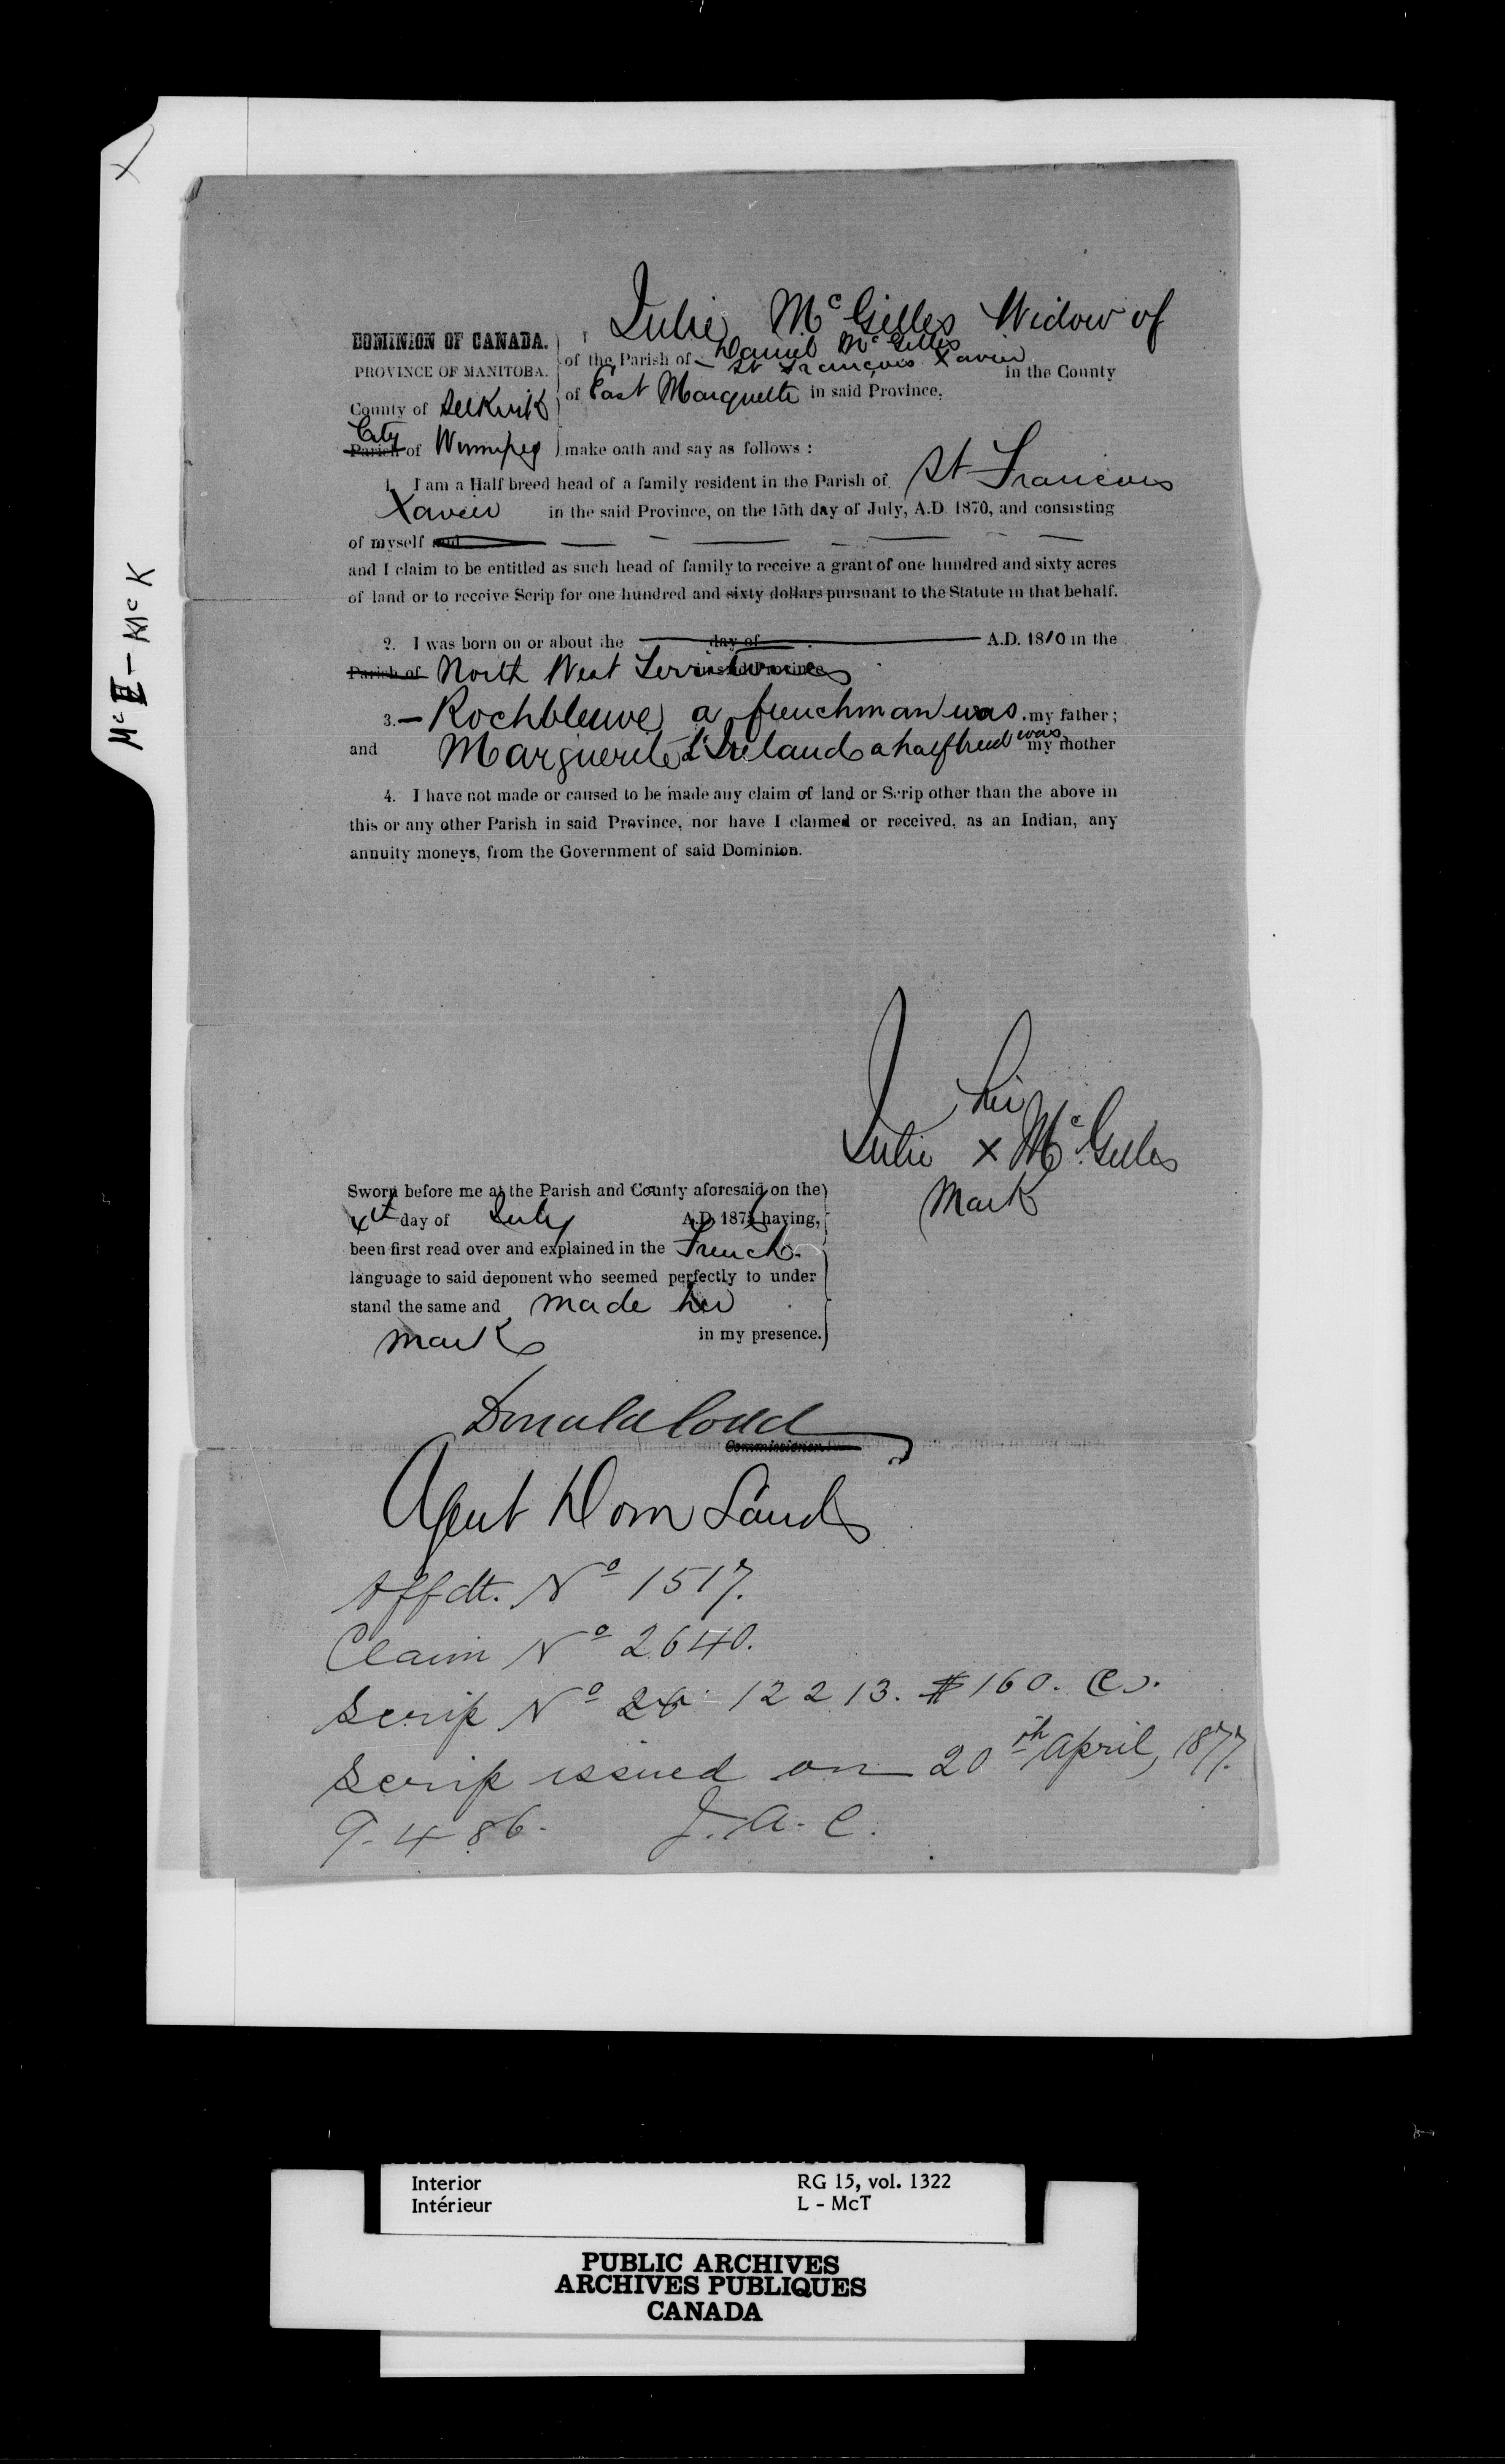 Julie McGilles Widow of
DOMINION OF CANADA.
PROVINCE OF MANITOBA.
County of Selkirk
City
Parish of Winnipeg
I
Daniel McGilles
of the Parish of St Francois Xavier in the County
of East Marquette in said Province,
make oath and say as follows :
1. I am a Half breed head of a family resident in the Parish of St Francois
Xavier in the said Province, on the 15th day of July, A.D. 1870, and consisting
of myself and
and I claim to be entitled as such head of family to receive a grant of one hundred and sixty acres
of land or to receive Scrip for one hundred and sixty dollars pursuant to the Statute in that behalf.
2. I was born on or about the day of A.D. 1810 in the
Parish of North West Territories in said Province
3. – Rochbleuve a frenchman was my father ;
and Marguerite L'Ireland a halfbreed was my mother
4. I have not made or caused to be made any claim of land or Scrip other than the above in
this or any other Parish in said Province, nor have I claimed or received, as an Indian, any
annuity moneys, from the Government of said Dominion.
her
Julie x McGilles
Mark
Sworn before me at the Parish and County aforesaid on the
4th day of July A.D. 1876 having,
been first read over and explained in the French
language to said deponent who seemed perfectly to under
stand the same and made her
mark in my presence.
Donald Codd
Commissioner
Agent Dom Lands
Affdt. No 1517.
Claim No 2640.
Scrip No 26 12213. $160.
Scrip issued on 20th April, 1877.
9-4-86. J.A.C.
X
McI - McK
Interior RG 15, vol. 1322
Intérieur L - McT
PUBLIC ARCHIVES
ARCHIVES PUBLIQUES
CANADA